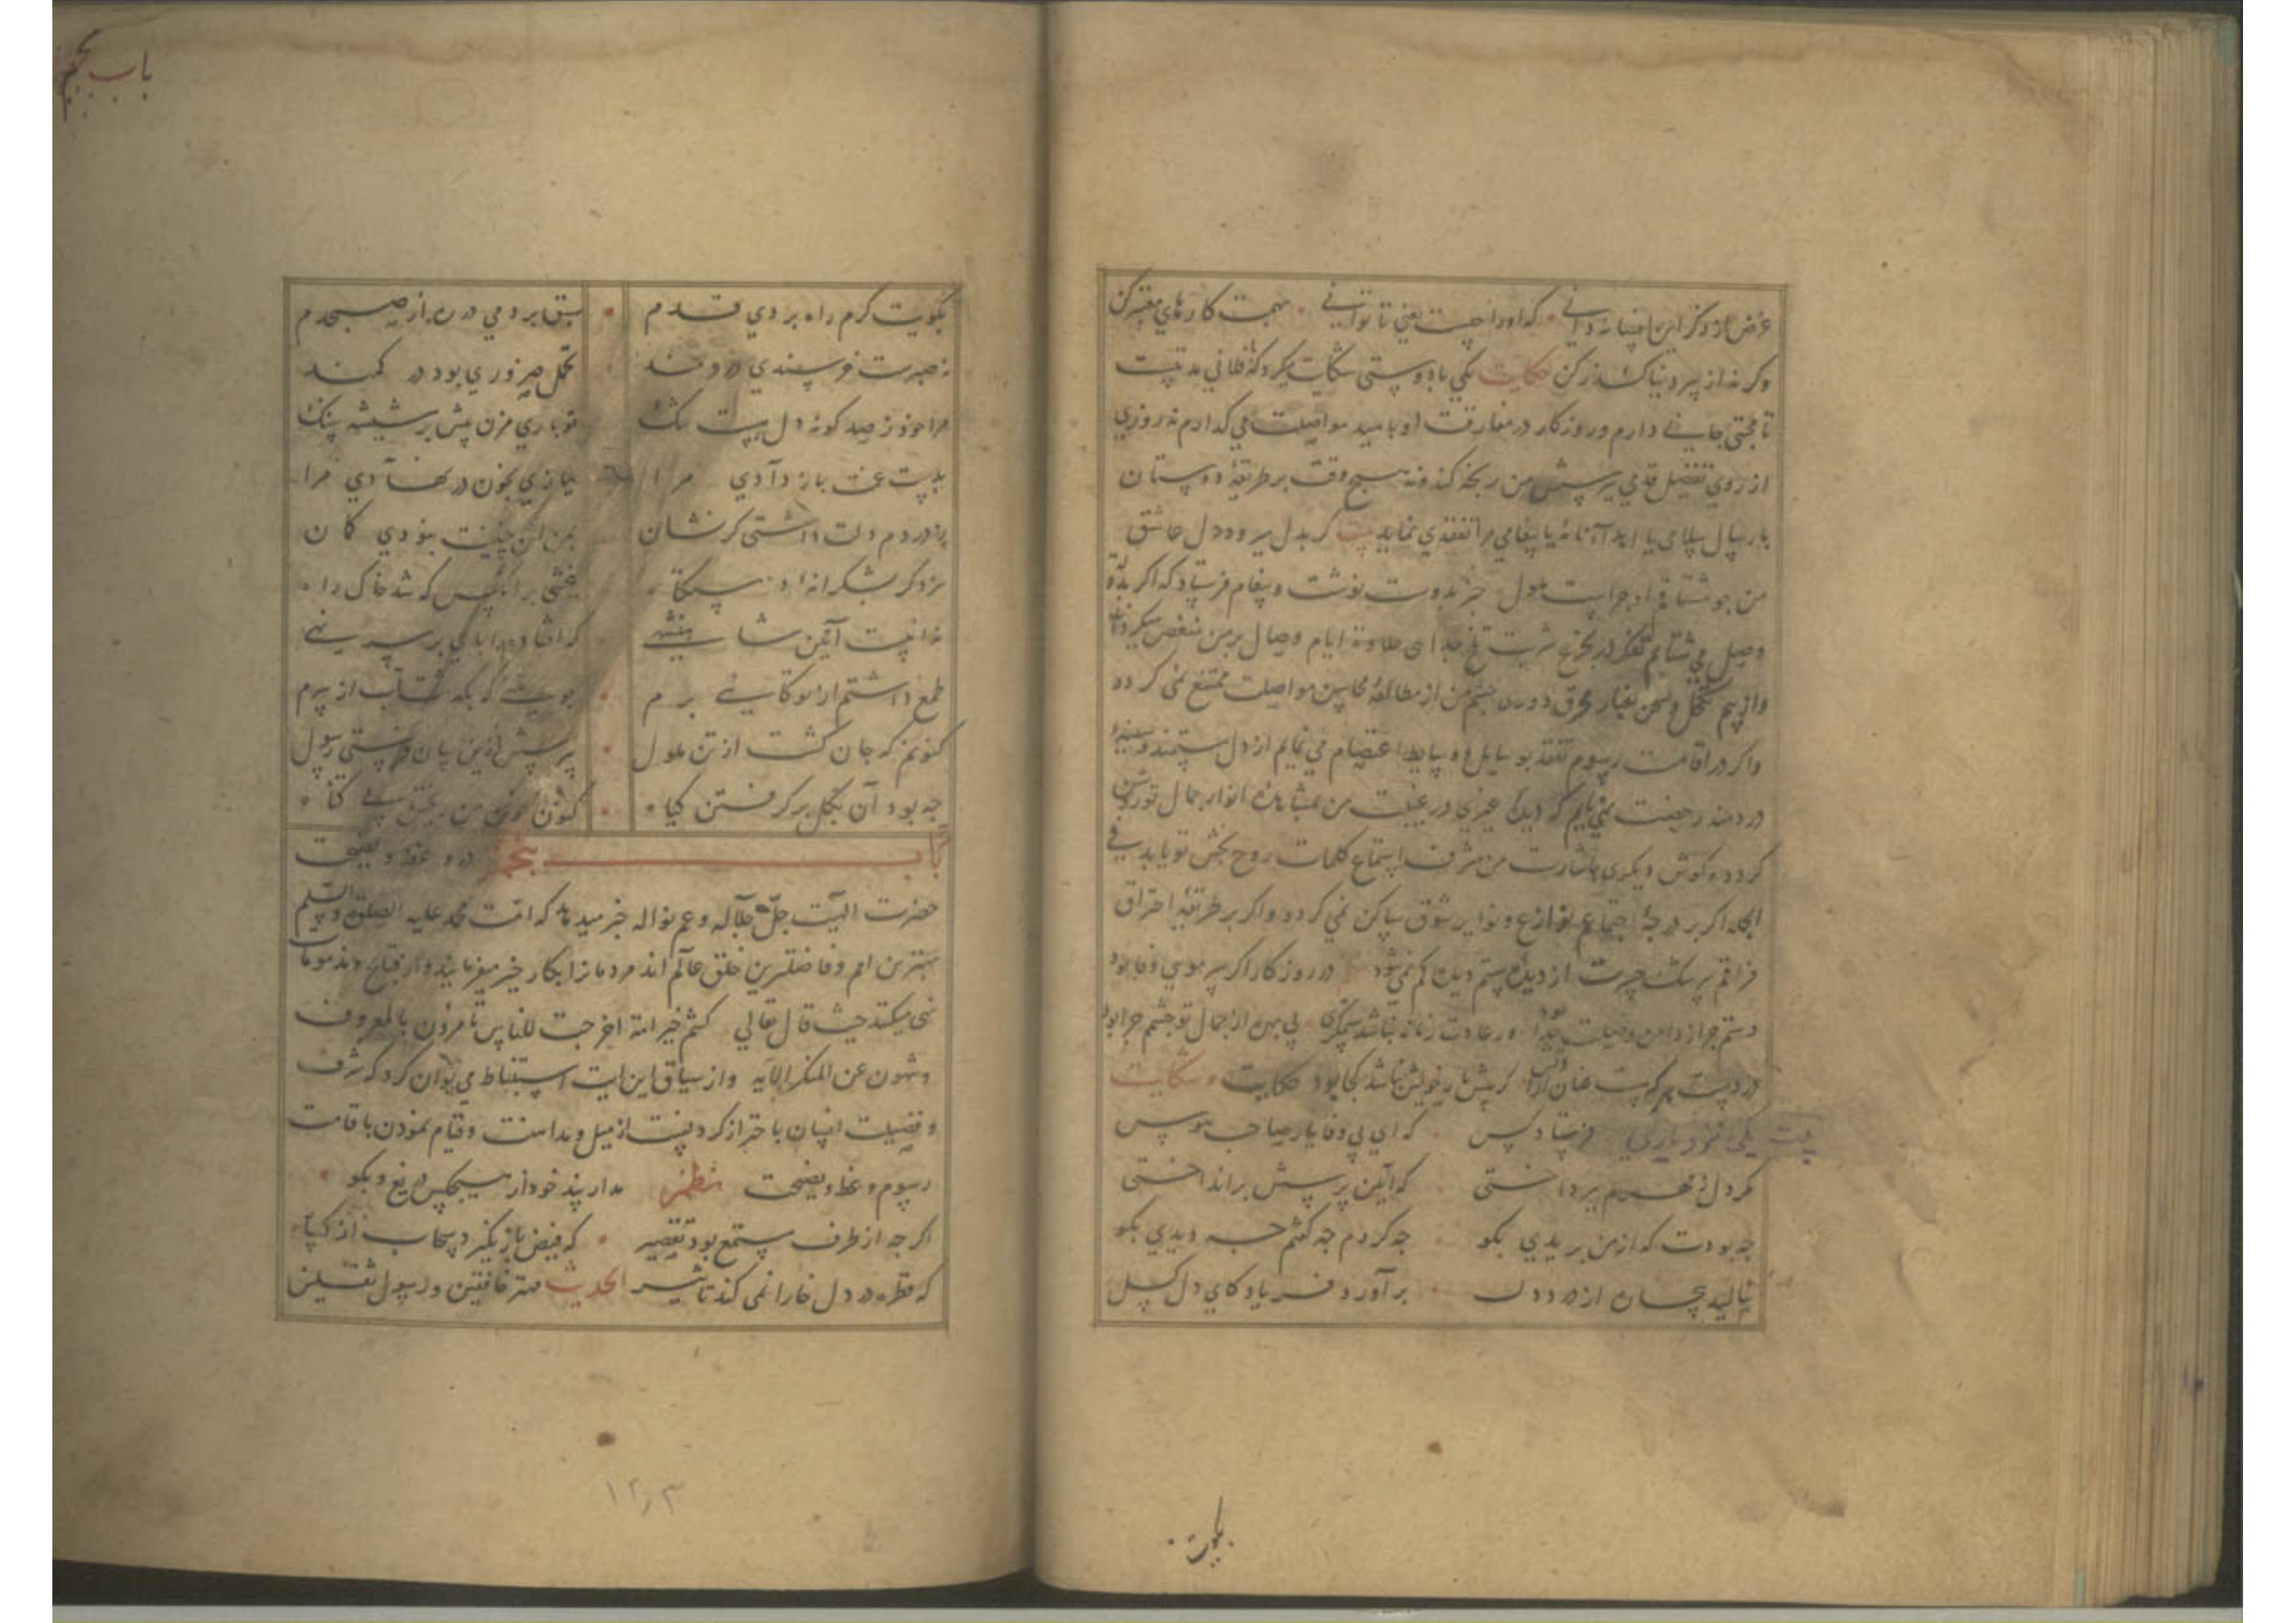 غرض از ذکر این افسانه دانی که او را چیست یعنی تا توانی بهمت کارهای معتبر کن
وکرنه از پیر دنیا کذر کن حکایت یکی با دوستی شکایت میکرد که فلانی مدتیست
تا محبتی جانی دارم وروزکار در مفارقت او بامید مواصلت می کذارم نه روزی
از روی تفضل قدمی بپرسش من رنجه کند ونه هیچ وقت بر طریقه دوستان
بارسال سلامی یا اید آنانه یا پیغامی مرا تفقدی نماید کر بدل میرود دل عاشق
من جو مشتاقم او جراست ملول بدوست نوشت وپیغام فرستاد که اکر
وصل می شتابم تفکر در تجرع شربت تلخ جدای حلاوة ایام وصال بر من منغص میکرداند
دوری جشم من از مطالعه محاسن مواصلت ممتنع نمی کردد
واکر در اقامت رسوم تفقد بوسایل ووسایط اعتصام می نمایم از دل ستمند وسینه
دردمند رخصت نمی یابم که دیده غیری در غیبت من بمشاهده انوار جمال تو روشن
کردد وکوش دیکری من شرف استماع کلمات روح بخش تو یابد فی
الجمله اکر بر درجه اجتماع نوازع ونوایر شوق ساکن نمی کردد واکر بر طریقه احتراق
فراقم سرشک حیرت از دیده ستم دیده کم نمی شود در روزکار اکر سر مویی وفا بود
دستم جرا از دامن وصلت جدا بود ور عادت زمانه نباشد ستمکری بی بهره از جمال تو جشمم جرا بود
در دست هر که هست عنان کر پیش یار خویش نباشد کجا بود حکایت وشکایت
بیت یکی نزد یاری فرستاد کس که ای بی وفا یار صاحب هوس
مکر دل ز مهرم بپرداختی که آیین پرسش برانداختی
جه بودت که ازمن بریدی بکو جه کردم جه کفتم جه دیدی بکو
بنالید جان از درد دل برآورد فریاد کای دل کسل
بکویت
باب پنجم
بکویت کرم راه بردی قدم سبق بردمی در ره از صبحدم
نه صبرت خرسندی دردمند تحمل ضروری بود در کمند
مرا خود ز صد کونه دل پست تنک تو باری مزن بیش بر شیشه سنک
بدست غمت باز دادی مرا بیازی بخون در نهادی مرا
بدردم دلت داشتی کر نشان بمن این جنینت نبودی کمان
سزد کر بشکرانه دستکاه ببخشی بر انکس که شد خاک راه
ندانیست آیین شاهنشهی که افتاده را پای بر سر نهی
طمع داشتم از تو کایی برم نه که شتاب از برم
کنونم که جان کشت از تن ملول بپرسش ازین سان فرستی رسول
جه بود آن بکل برکرفتن کیاه کنون خون من ریختن بی کناه
باب پنجم در وعظ ونصیحت
حضرت الهیت جل جلاله وعم نواله خبر میدهد که امت محمد علیه الصلوة والسلم
بهترین امم وفاضلترین خلق عالم اند مردمانرا بکار خیر میفرمایند واز قبایح ومذمومات
نهی میکنند حیث قال تعالی کنتم خیر امة اخرجت للناس تامرون بالمعروف
وتنهون عن المنکر الایه واز سیاق این ایت استنباط می توان کرد که شرف
وفضیلت انسان باحتراز کردنست از میل ومداهنت وقیام نمودن باقامت
رسوم وعظ ونصیحت نظم مدار پند خود از هیچکس دریغ وبکو
اکر جه از طرف مستمع بود تقصیر که فیض باز نکیرد سحاب از کیاه
که قطره در دل خارا نمی کند تاثیر الحدیث مهتر خافقین ورسول ثقلین
۱۲۳